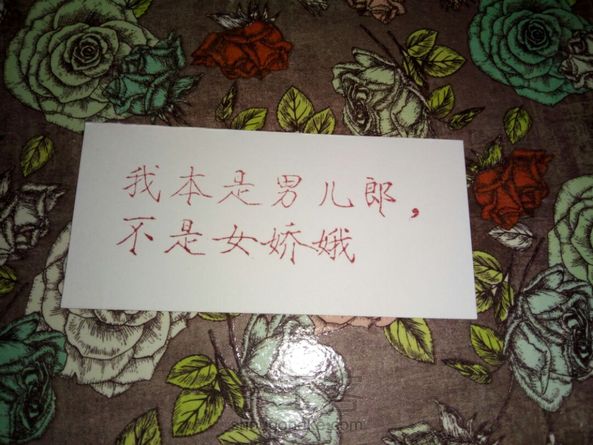 我本是男儿郎，
不是女娇娥